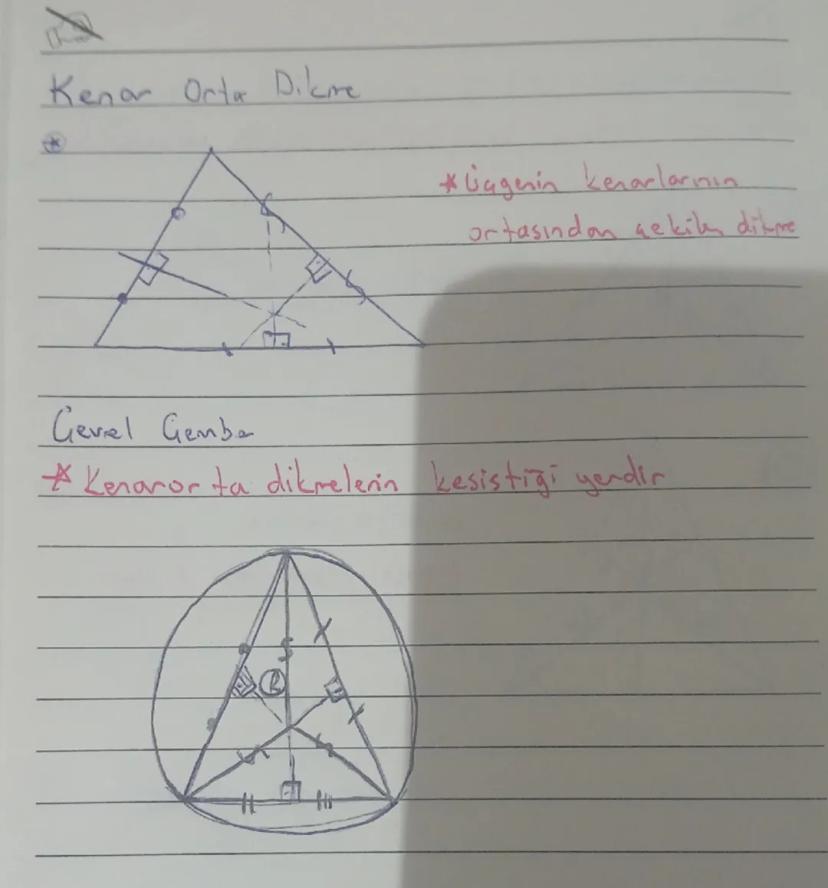 Kenar Orta Dikme
* Üçgenin kenarlarının
ortasından çekilen dikme
Çevrel Çember
* Kenarorta dikmelerin kesistiği yerdir
R